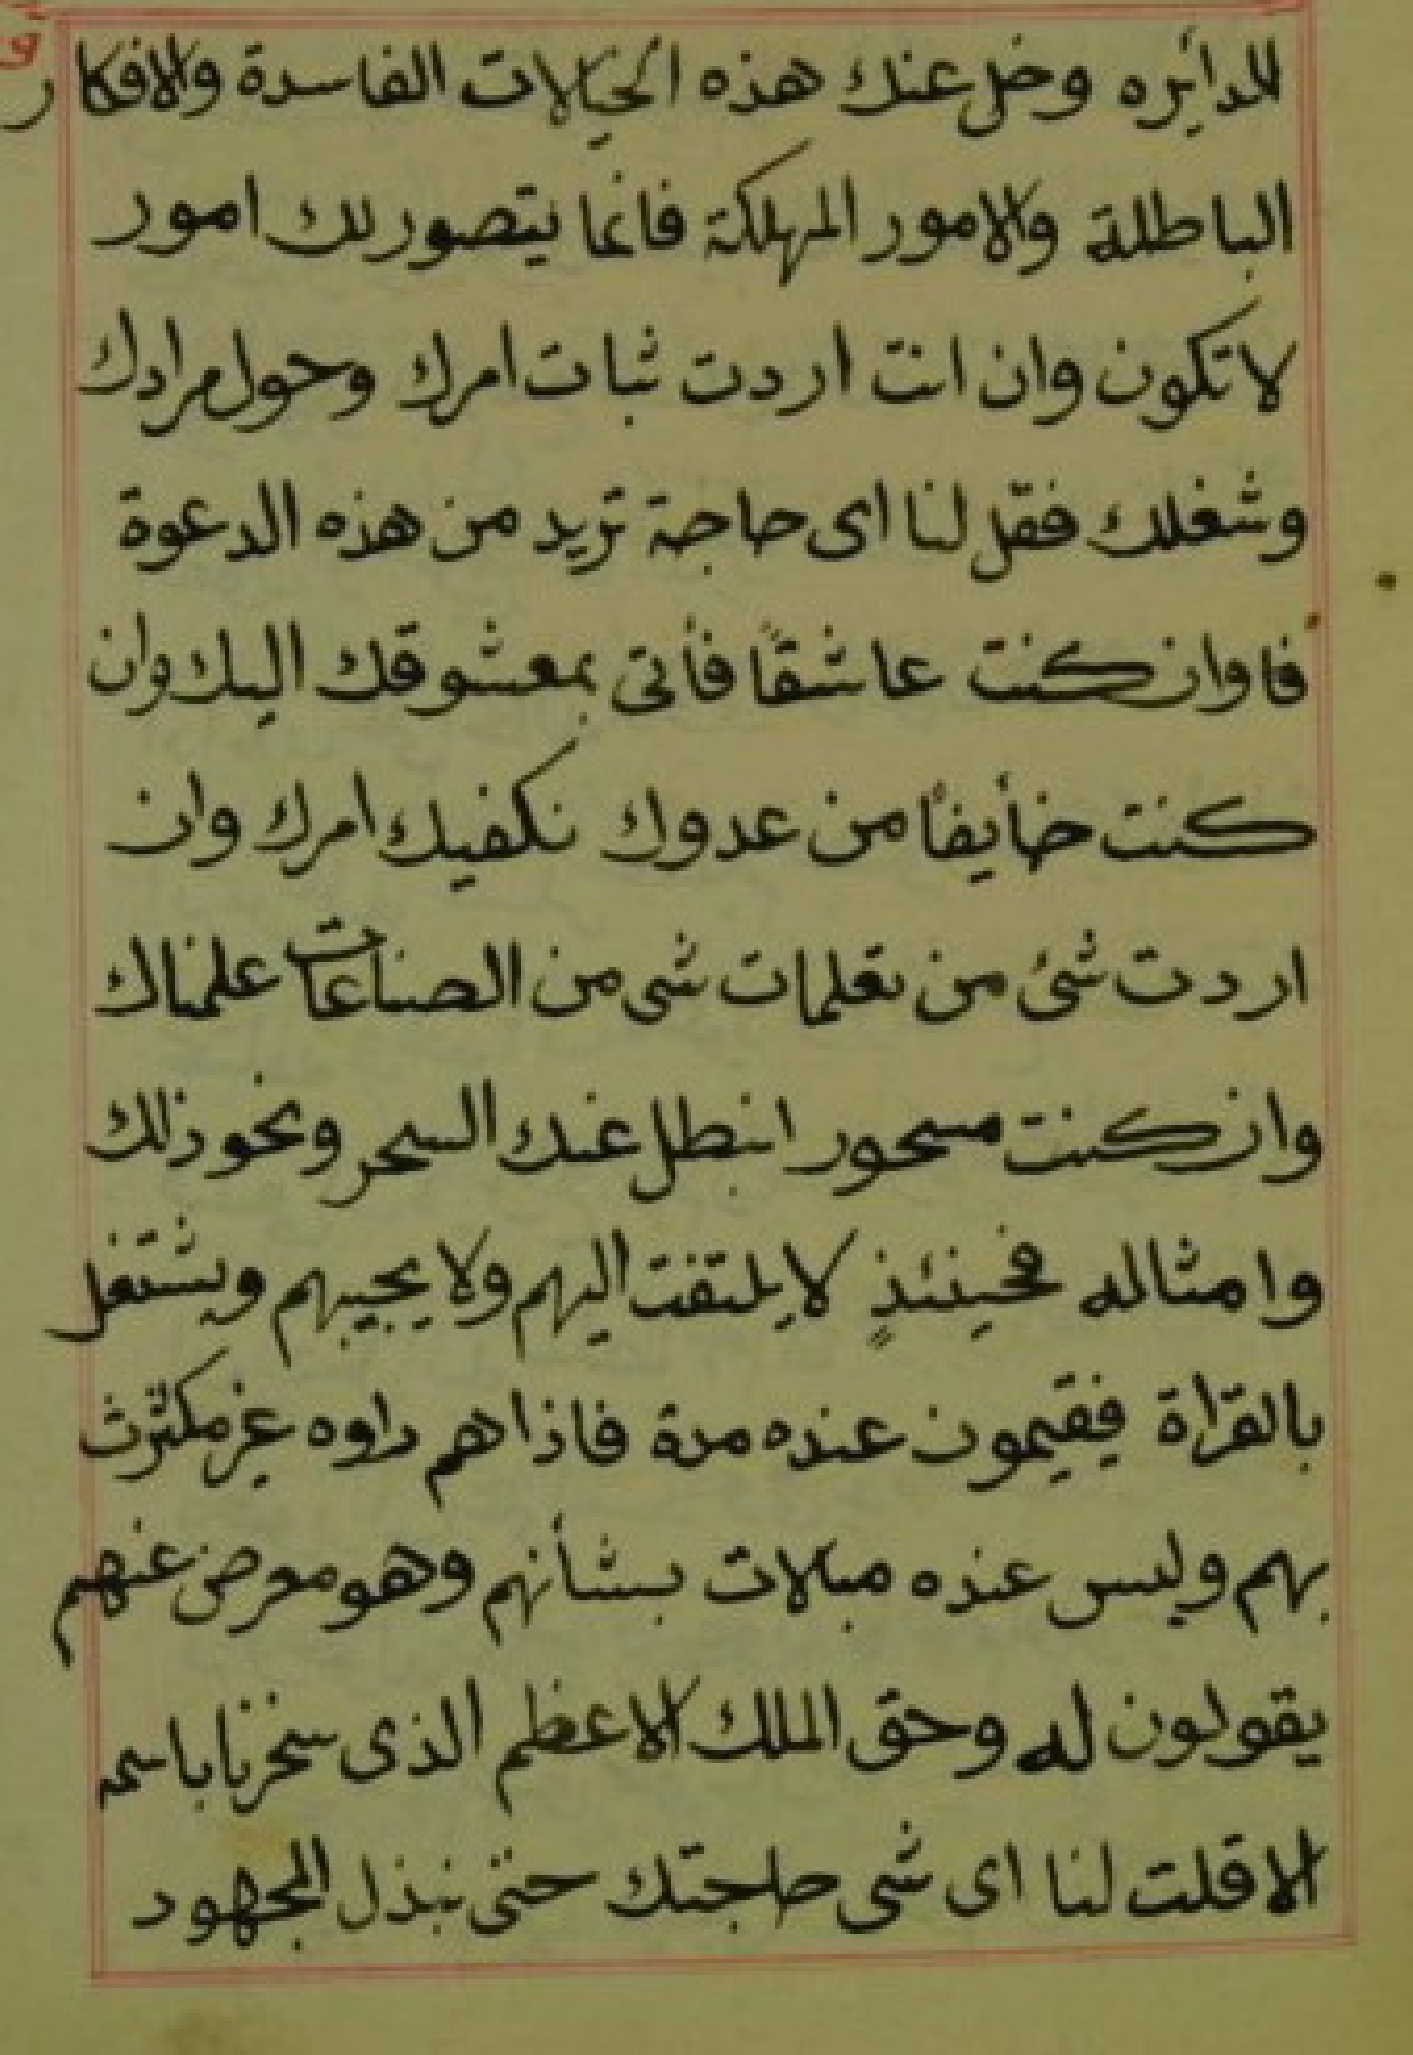 للدائره وخل عنك هذه الخيالات الفاسدة والافكار
الباطلة والامور المهلكة فانما يتصور لك امور
لا تكون وان انت اردت ثبات امرك وحول مرادك
وشغلك فقل لنا اى حاجة تريد من هذه الدعوة
فاوان كنت عاشقًا فأتى بمعشوقك اليك وان
كنت خأيفًا من عدوك نكفيك امرك وان
اردت شئ من تعلمات شى من الصناعات علمناك
وان كنت مسحور انبطل عنك السحر ونحو ذلك
وامثاله فحينئذٍ لا يلتفت اليهم ولا يجيبهم ويشتغل
بالقرأة فيقيمون عنده مدة فاذا هم راوه غير مكترث
بهم وليس عنده مبلات بشأنهم وهو معرض عنهم
يقولون له وحق الملك الاعظم الذى سخرنا باسمه
الا قلت لنا اى شى حاجتك حتى نبذل المجهود